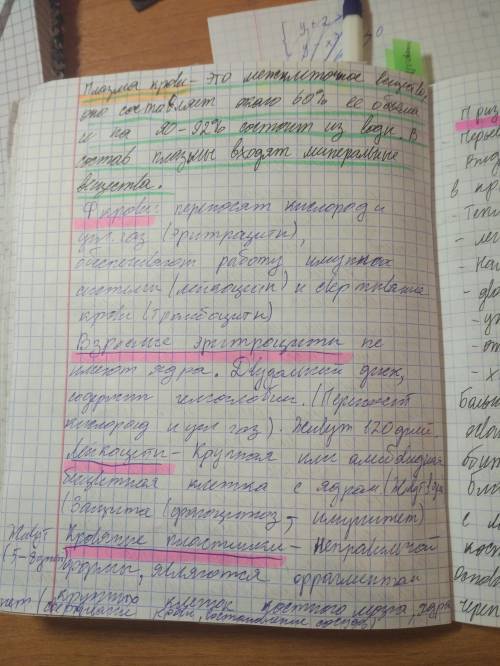 Плазма крови - это межклеточное вещество,
оно составляет около 60% её объема
и на 90-92% состоит из воды В
состав плазмы входят минеральные
вещества.
Ф. крови: переносят кислород и
угл. газ (эритроциты),
обеспечивают работу имунной
системы (лейкоциты) и свертывание
крови (тромбоциты)
Взрослые эритроциты не
имеют ядра. Двудальний диск,
содержит гемоглобин. (Переносит
кислород и угл газ). Живут 120 дней.
Лейкоциты - Круглая или амебовидная
бесцветная клетка с ядром (Живут
(Защита (фагоцитоз, имунитет)
Кровяные пластинки - неправильной
Живут
(5-8
формы, являются фрагментом
крупных клеток костного мозга, ядра
нет (свертывание крови,
Приз
Перве
Вход
в кр
Тепл
- лег
- дво
- ут
- от
- х
боль
с м
кост
Основ
череп